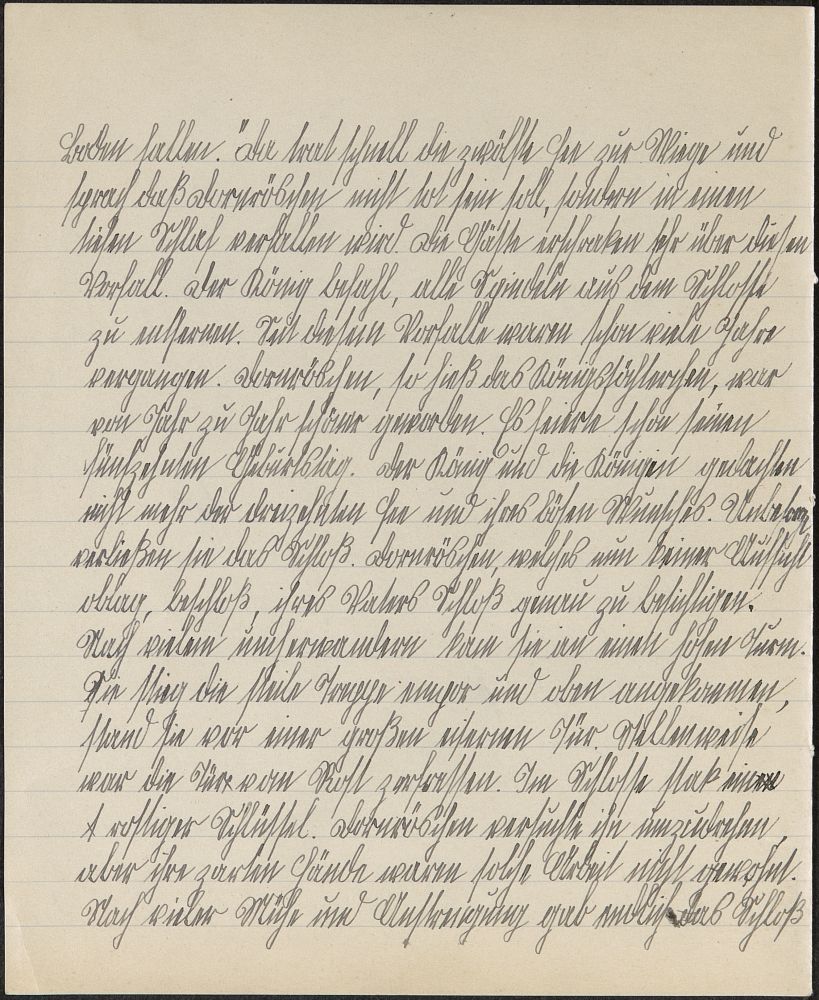 Boden fallen." Da trat schnell die zwölfte Fee zur Wiege und
sprach daß Dornröschen nicht tot sein soll, sondern in einen
tiefen Schlaf verfallen wird. Die Gäste erschraken sehr über diesen
Vorfall. Der König befahl, alle Spindeln aus dem Schlosse
zu entfernen. Seit diesem Vorfalle waren schon viele Jahre
vergangen. Dornröschen, so hieß das Königstöchterchen, war
von Jahr zu Jahr schöner geworden. Es feierte schon seinen
fünfzehnten Geburtstag. Der König und die Königin gedachten
nicht mehr der dreizehnten Fee und ihres bösen Wunsches.
verließen sie das Schloß. Dornröschen, welches nun keiner Aufsicht
oblag, beschloß, ihres Vaters Schloß genau zu besichtigen.
Nach vielem umherwandern kam sie an einen hohen Turm.
Sie stieg die steile Treppe empor und oben angekommen,
stand sie vor einer großen eisernen Tür. Stellenweise
war die Türe von Rost zerfressen. Im Schlosse stak ein
rostiger Schlüssel. Dornröschen versuchte ihn umzudrehen,
aber ihre zarten Hände waren solche Arbeit nicht gewohnt.
Nach vieler Mühe und Anstrengung gab endlich das Schloß